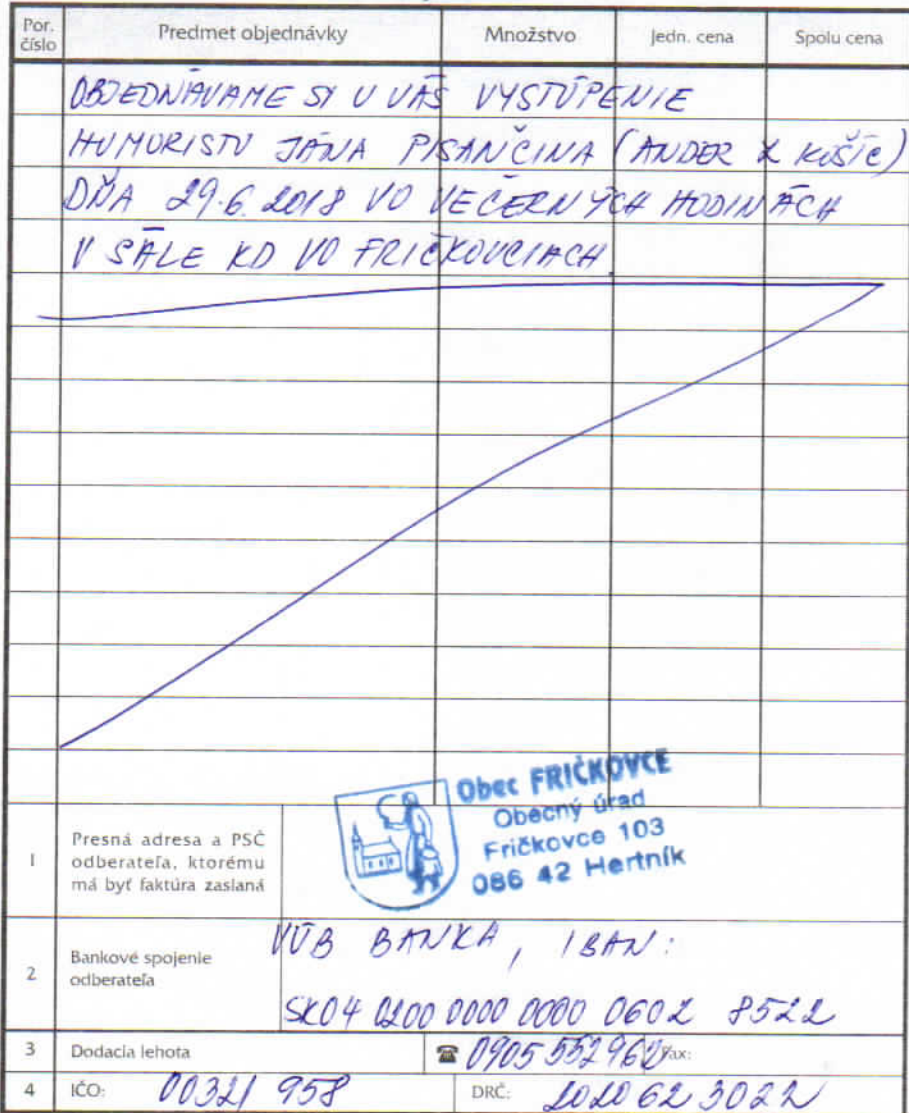 Por. číslo Predmet objednávky Množstvo Jedn. cena Spolu cena
OBJEDNÁVAME SI U VÁS VYSTÚPENIE
HUMORISTU JÁNA PISANČINA (ANDER Z KOŠÍC)
DŇA 29.6.2018 VO VEČERNÝCH HODINÁCH
V SÁLE KD VO FRIČKOVCIACH
Obec FRIČKOVCE
Obecný úrad
Fričkovce 103
086 42 Hertník
1 Presná adresa a PSČ
odberateľa, ktorému
má byť faktúra zaslaná
VÚB BANKA, IBAN:
2 Bankové spojenie
odberateľa
SK04 0200 0000 0000 0602 8522
3 Dodacia lehota ☎ 0905 552 962 Fax:
4 IČO: 00321 958 DRČ: 2020 62 3022